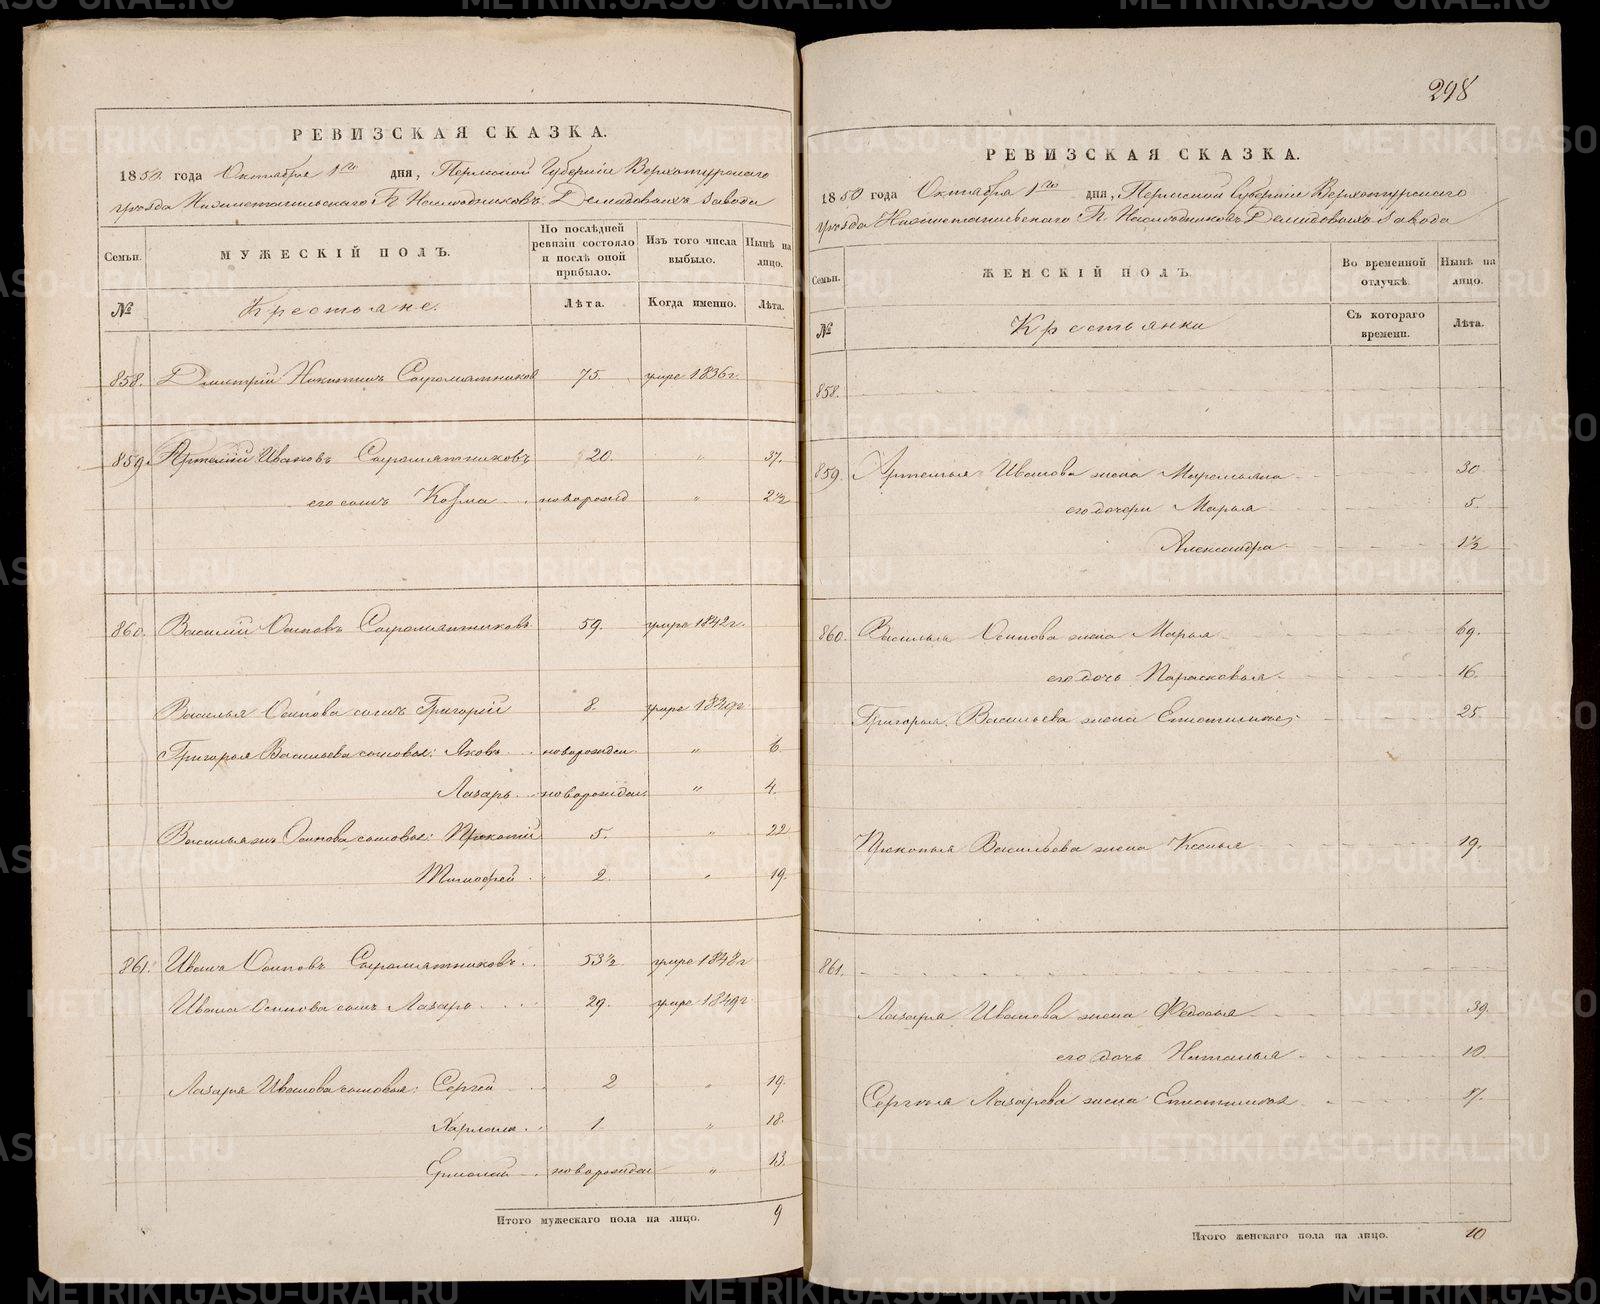 РЕВИЗСКАЯ СКАЗКА.
1850 года Октября 1го дня, Пермской Губернiи Верхотурскаго
уѣзда Нижнетагильскаго Г. Наслѣдниковъ Демидовыхъ завода
Семьи. МУЖЕСКIЙ ПОЛЪ. По послѣдней ревизiи состояло и послѣ оной прибыло. Изъ того числа выбыло. Нынѣ на лицо.
№ Крестьяне. Лѣта. Когда именно. Лѣта.
858. Дмитрiй Никитинъ Сыромятников 75. умре 1836 г.
859. Артемiй Ивановъ Сыромятниковъ 20. " 37.
его сынъ Козма новорожд " 2 1/2
860. Василiй Осиповъ Сыромятниковъ 59. умре 1842 г.
Василья Осипова сынъ Григорiй 8. умре 1849 г
Григорья Васильева сыновья: Яковъ новорожден " 6.
Лазарь новорожден. " 4.
Василья Осипова сыновья: Прокопiй 5. " 22
Тимофей 2. " 19.
861. Иванъ Осиповъ Сыромятниковъ 53 1/2 умре 1848 г
Ивана Осипова сынъ Лазарь 29. умре 1849 г
Лазаря Иванова сыновья: Сергей 2 " 19.
Харламъ 1 " 18.
Ермолай новорожден " 13.
Итого мужескаго пола на лицо. 9
298
РЕВИЗСКАЯ СКАЗКА.
1850 года Октября 1го дня, Пермской Губернiи Верхотурскаго
уѣзда Нижнетагильскаго Г. Наслѣдниковъ Демидовыхъ завода
Семьи. ЖЕНСКIЙ ПОЛЪ. Во временной отлучкѣ Нынѣ на лицо.
№ Крестьянки Съ котораго времени. Лѣта.
858.
859. Артемья Иванова жена Маремьяна 30
его дочери Марья 5.
Александра 1 1/2
860. Василья Осипова жена Марья 69.
его дочь Парасковья 16.
Григорья Васильева жена Епистимья 25
Прокопья Васильева жена Ксенья 19.
861.
Лазаря Иванова жена Федосья 39.
его дочь Наталья 10.
Сергѣя Лазарева жена Епистимья 17.
Итого женскаго пола на лицо. 10
METRIKI.GASO-URAL.RU